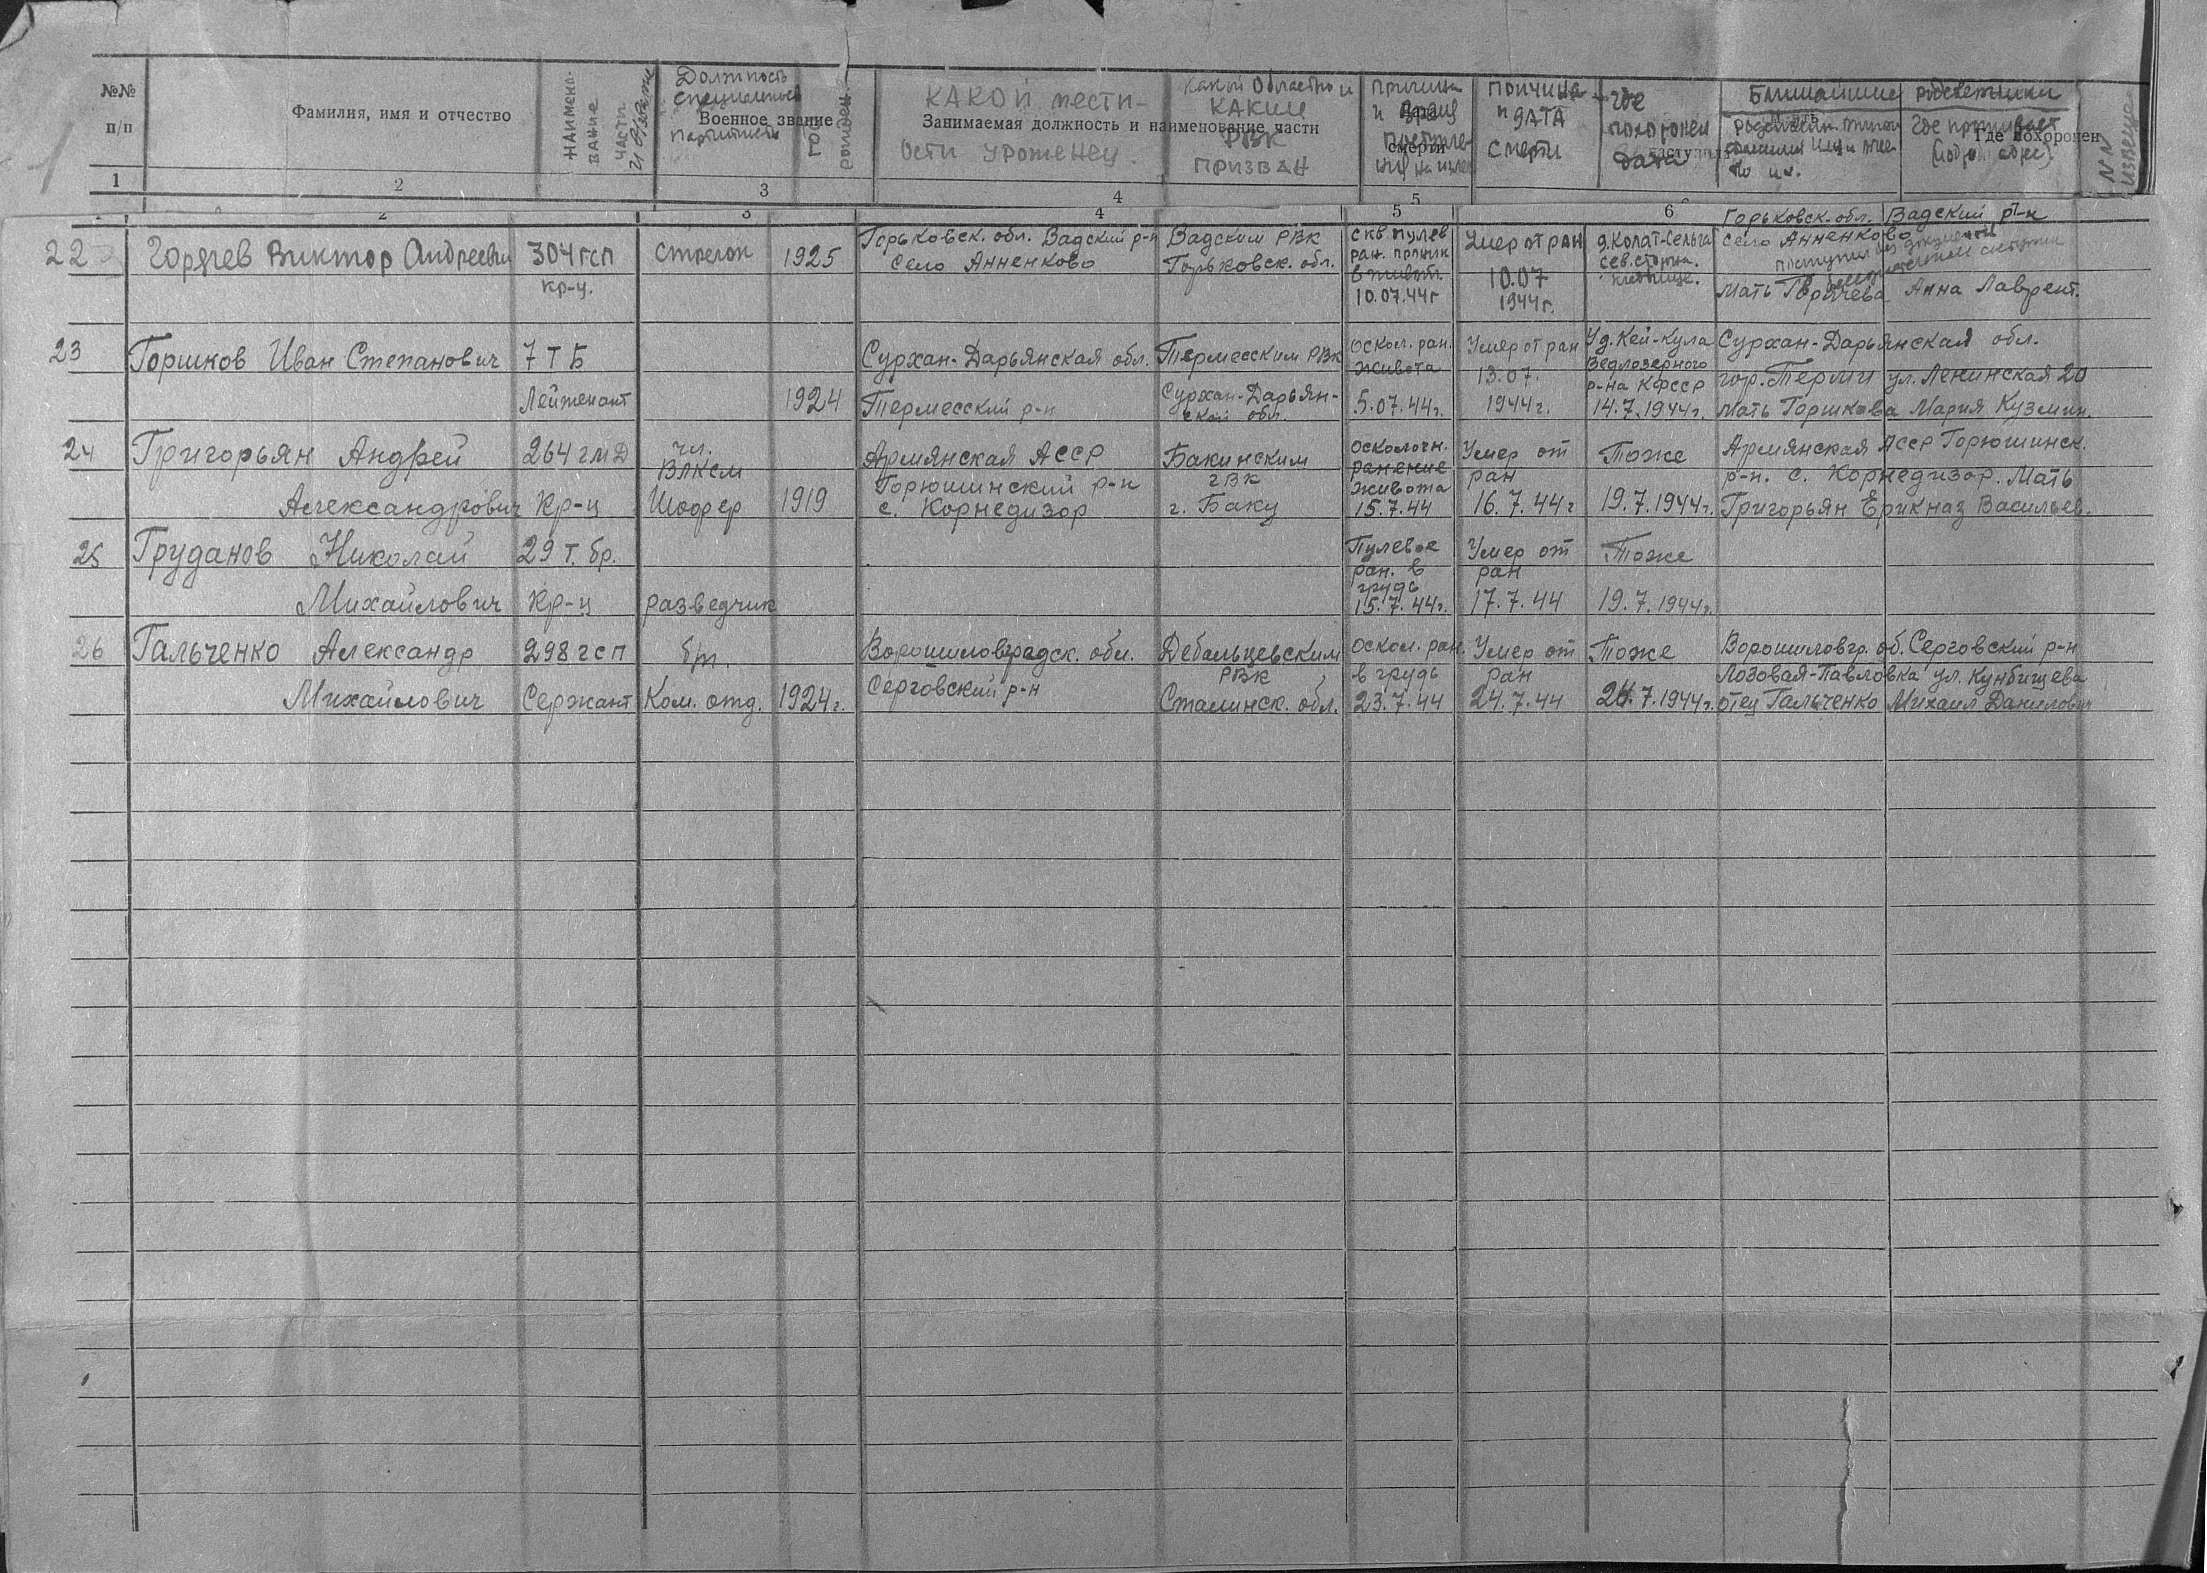 №№ п/п
Фамилия, имя и отчество
Наименование части и звание
Должность специальность партийность
Военное звание
Год рожден.
Какой местности уроженец
Занимаемая должность и наименование части
Какой областью и каким РВК призван
Причина и
Причина и дата смерти
Где похоронен дата
Ближайшие родственники
Где проживает
Где похоронен
1 2 3 4 5
2 3 4 5 6
22 Горячев Виктор Андреевич 304 гсп стрелок 1925 Горьковск. обл. Вадский р-н Вадским РВК скв пулев Умер от ран д. Колат-Сельга Горьковск. обл. Вадский р-н
кр-ц. село Анненково Горьковск. обл. ран. в живот. 10.07 сев. сторона. село Анненково
10.07.44г 1944г. кладбище. мать Горячева Анна Лаврент.
23 Горшков Иван Степанович 7 ТБ Сурхан-Дарьянская обл. Термесским РВК оскол. ран. Умер от ран У д. Кей-Кула Сурхан-Дарьянская обл.
живота 13.07. Ведлозерного гор. Терми ул. Ленинская 20
Лейтенант 1924 Термесский р-н Сурхан-Дарьянской обл. 5.07.44г. 1944г. р-на КФССР 14.7.1944г. мать Горшкова Мария Кузмин.
24 Григорьян Андрей 264 гмд чл. ВЛКСМ Армянская АССР Бакинским осколочн. Умер от Тоже Армянская АССР Горюшинск.
Горюшинский р-н ГВК ранение ран р-н. с. Корнедизор. Мать
Александрович Кр-ц Шофер 1919 с. Корнедизор г. Баку живота 15.7.44 16.7.44г 19.7.1944г. Григорьян Ерикназ Васильев.
25 Груданов Николай 29 т. бр. Пулевое Умер от Тоже
ран. в ран
Михайлович Кр-ц разведчик грудь 15.7.44г. 17.7.44 19.7.1944г.
26 Гальченко Александр 298 гсп бп. Ворошиловградск. обл. Дебальцевским оскол. ран. Умер от Тоже Ворошиловгр. об. Серговский р-н
РВК в грудь ран Лозовая-Павловка ул. Куйбищева
Михайлович Сержант Ком. отд. 1924г. Серговский р-н Сталинск. обл. 23.7.44 24.7.44 24.7.1944г. отец Гальченко Михаил Данилович